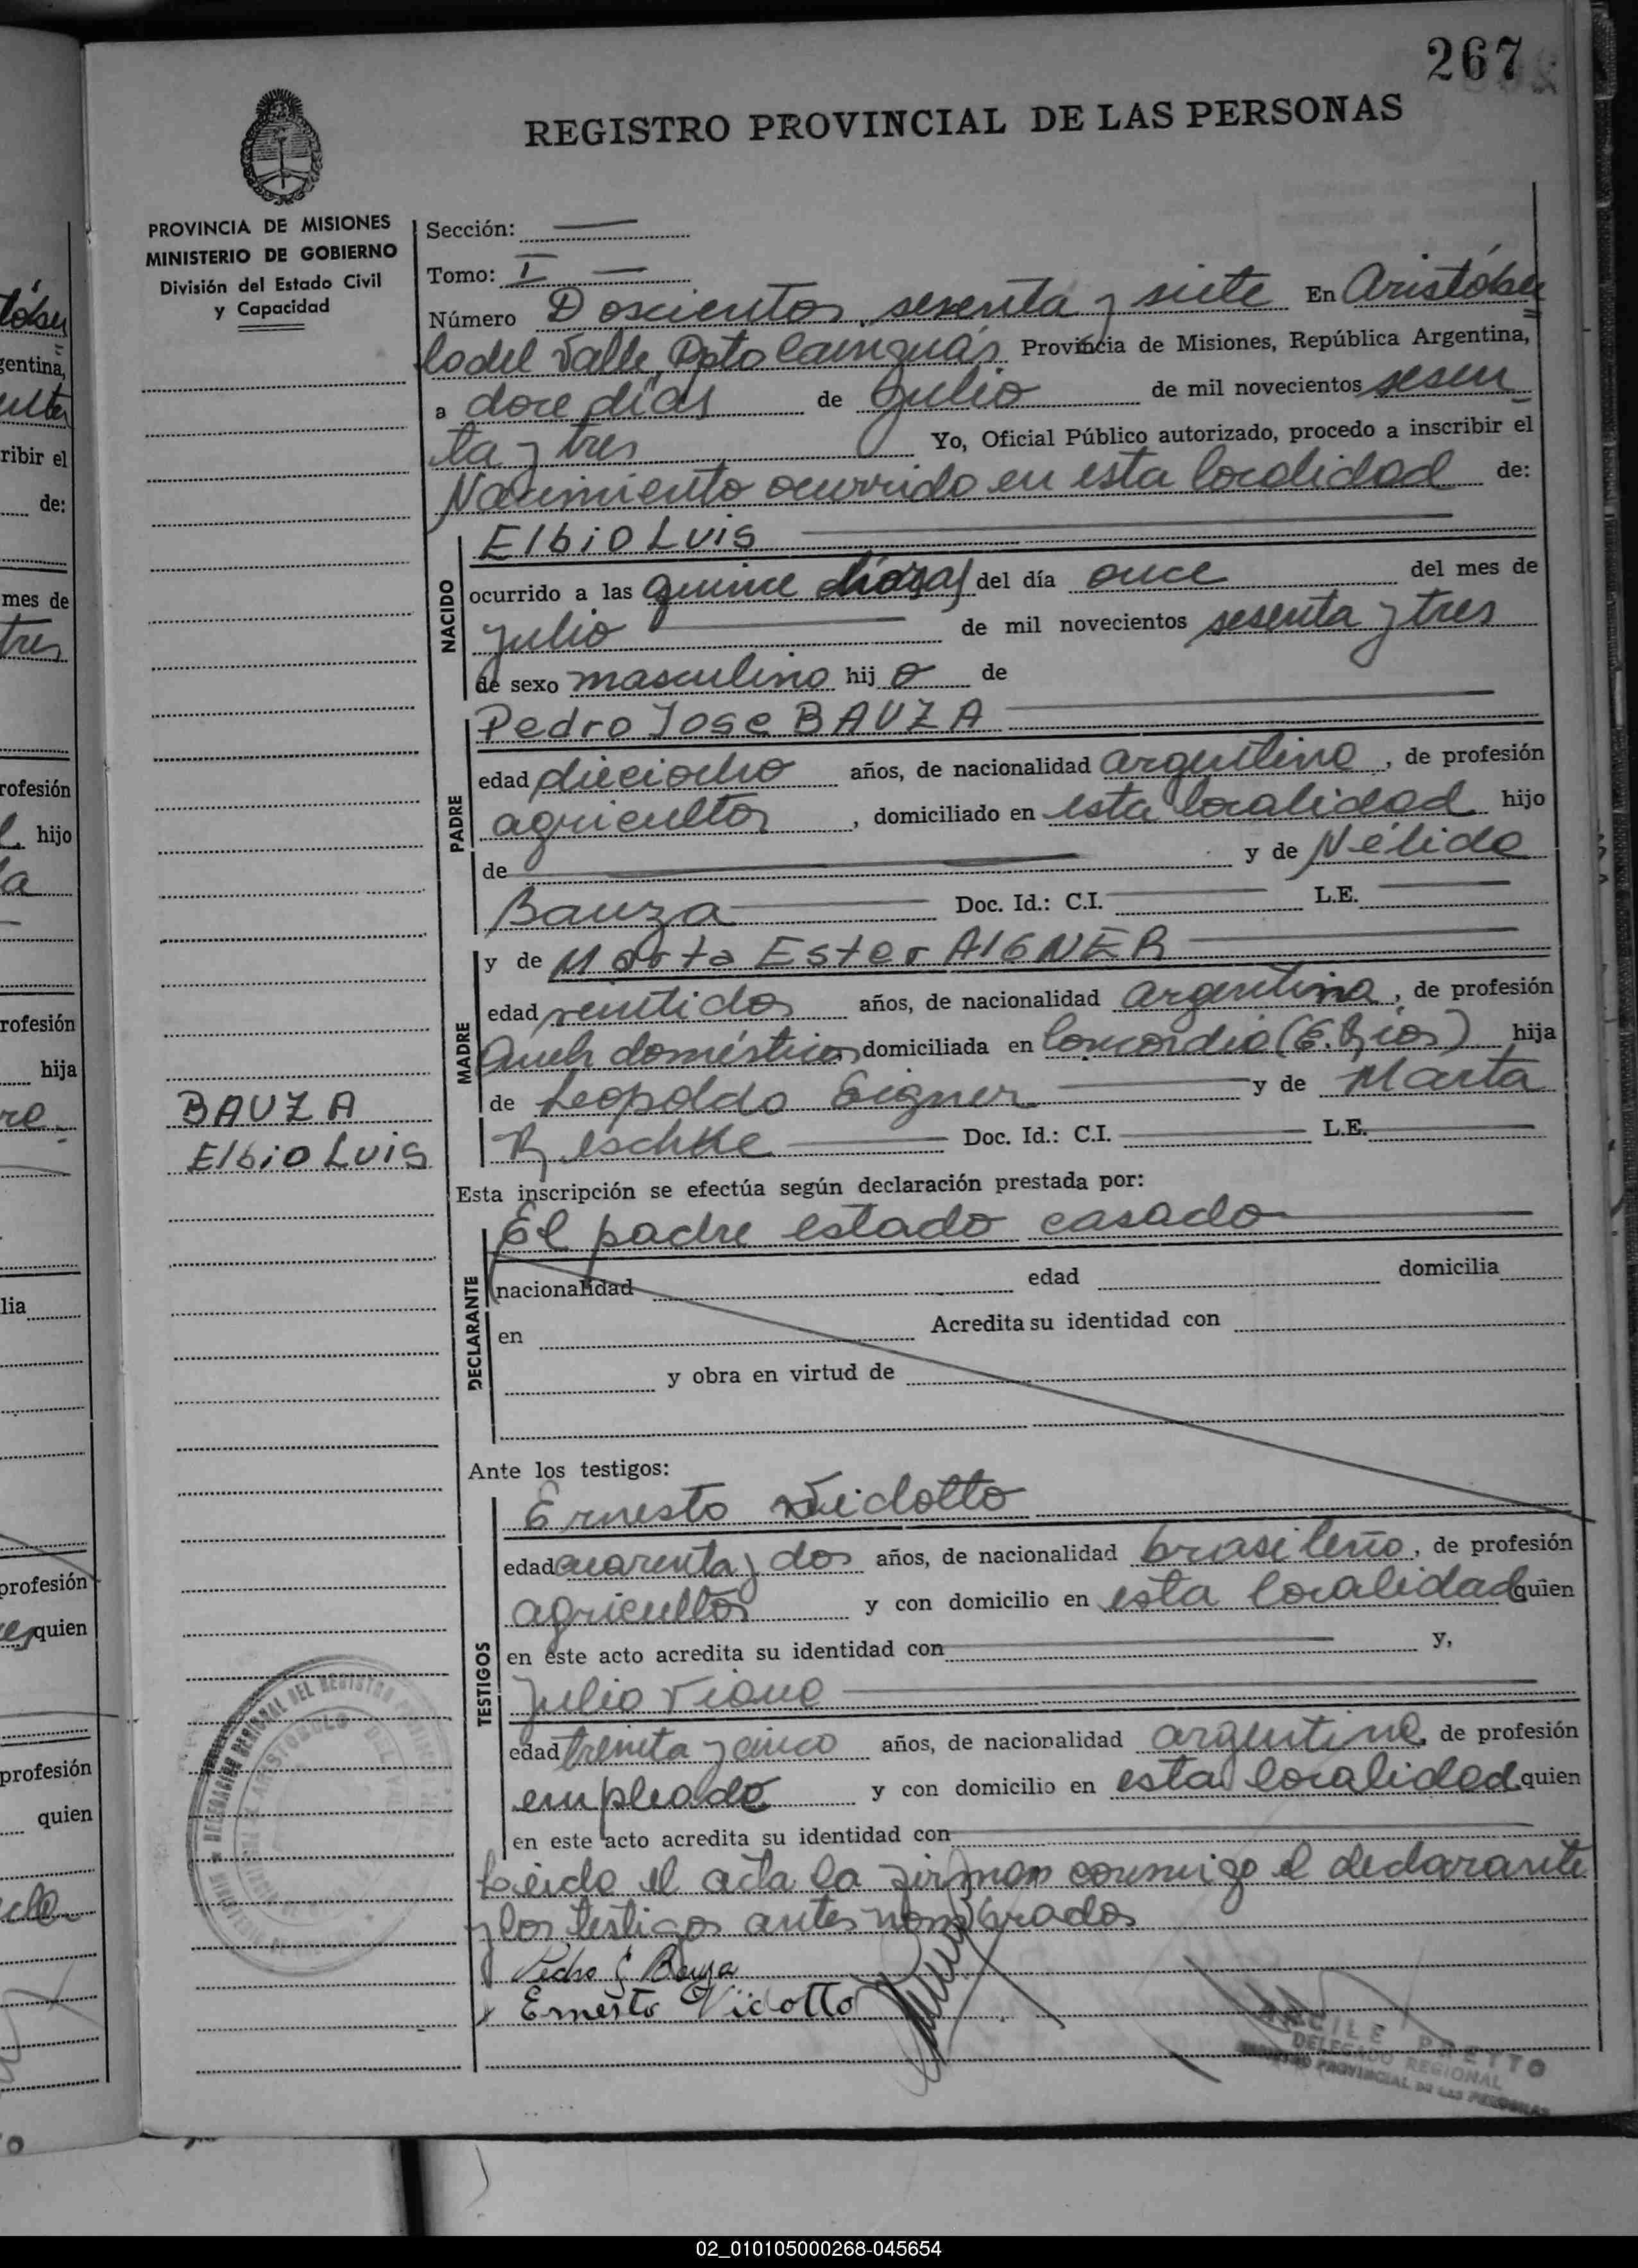 267
REGISTRO PROVINCIAL DE LAS PERSONAS
PROVINCIA DE MISIONES
MINISTERIO DE GOBIERNO
División del Estado Civil
y Capacidad
Sección:
Tomo: I
Número Doscientos sesenta y siete En Aristóbu
lo del Valle, Dpto Cainguás Provincia de Misiones, República Argentina,
a doce días de Julio de mil novecientos sesen
ta y tres Yo, Oficial Público autorizado, procedo a inscribir el
Nacimiento ocurrido en esta localidad de:
NACIDO
Elbio Luis
ocurrido a las quince horas del día once del mes de
julio de mil novecientos sesenta y tres
de sexo masculino hijo de
PADRE
Pedro Jose BAUZA
edad dieciocho años, de nacionalidad argentino, de profesión
agricultor, domiciliado en esta localidad hijo
de y de Nélida
Bauza Doc. Id.: C.I. L.E.
MADRE
y de Marta Ester AIGNER
edad veintidos años, de nacionalidad argentina, de profesión
domésticos domiciliada en Concordia (E. Rios) hija
de Leopoldo Eigner y de Marta
Reschke Doc. Id.: C.I. L.E.
BAUZA
Elbio Luis
Esta inscripción se efectúa según declaración prestada por:
DECLARANTE
El padre estado casado
nacionalidad edad domicilia
en Acredita su identidad con
y obra en virtud de
Ante los testigos:
TESTIGOS
Ernesto Vidotto
edad cuarenta y dos años, de nacionalidad brasileño, de profesión
agricultor y con domicilio en esta localidad quien
en este acto acredita su identidad con y,
Julio Viana
edad treinta y cinco años, de nacionalidad argentino, de profesión
empleado y con domicilio en esta localidad quien
en este acto acredita su identidad con
Leida el acta la firman conmigo el declarante
y los testigos antes nombrados
Pedro J Bauza
Ernesto Vidotto
DELEGACION REGIONAL DEL REGISTRO
ARISTOBULO DEL VALLE
PRETTO
DELEGADO REGIONAL
REGISTRO PROVINCIAL DE LAS PERSONAS
tóbu
gentina,
ribir el
de:
mes de
tres
rofesión
hijo
rofesión
hija
lia
profesión
quien
profesión
quien
02_010105000268-045654